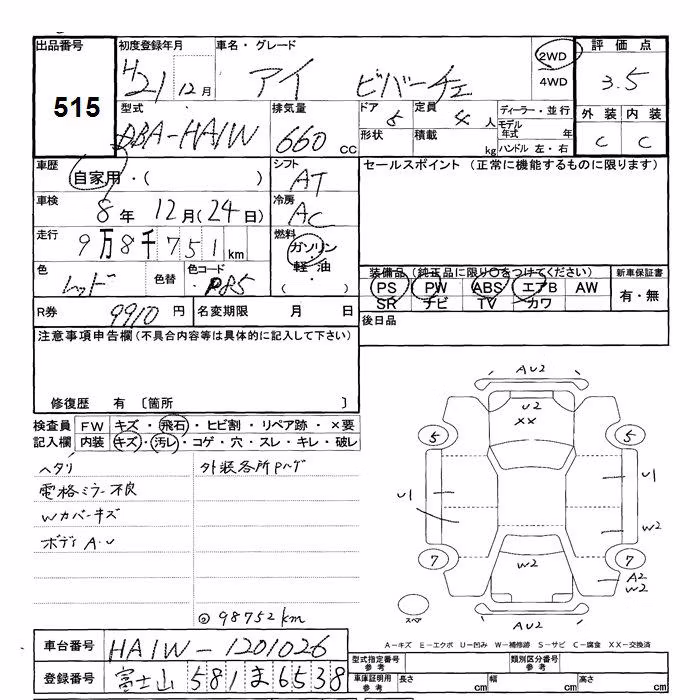 出品番号 515
初度登録年月 H21 12月
車名・グレード アイ ビバーチェ
2WD
4WD
評価点 3.5
外装 内装
C C
型式 DBA-HA1W
排気量 660 cc
ドア 5
定員 4 人
形状 積載 kg
ディーラー・並行
モデル年式 年
ハンドル 左・右
車歴 自家用・( )
シフト AT
セールスポイント (正常に機能するものに限ります)
車検 8年 12月(24日)
冷房 AC
走行 9万8千751km
燃料 ガソリン・軽油 ( )
色 レッド 色替 色コード P85
装備品 (純正品に限り○をつけてください)
新車保証書
PS PW ABS エアB AW
SR ナビ TV カワ
有・無
R券 9910 円 名変期限 月 日
後日品
注意事項申告欄 (不具合内容等は具体的に記入して下さい)
修復歴 有 〔箇所 〕
検査員 FW キズ・飛石・ヒビ割・リペア跡・×要
記入欄 内装 キズ・汚レ・コゲ・穴・スレ・キレ・破レ
ヘタリ 外装各所ハゲ
電格ミラー不良
Wカバーキズ
ボディA.U
98752km
AU2
U2
XX
5 5
U1 U1
W2
7 7
W2
A2
W2
スペア
AU2
A-キズ E-エクボ U-凹み W-補修跡 S-サビ C-腐食 XX-交換済
車台番号 HA1W-1201026
登録番号 富士山 581 ま 6538
型式指定番号 参考
類別区分番号 参考
車庫証明用 参考
長さ cm 幅 cm 高さ cm